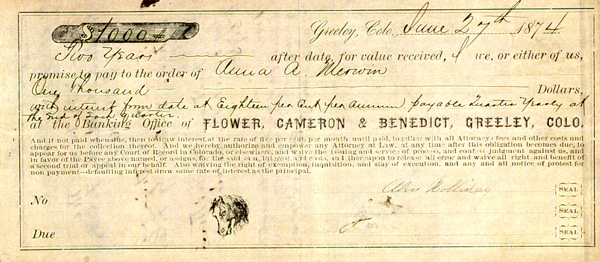 $1000
Greeley, Colo., June 27th 1874
Two Years after date, for value received, I we, or either of us,
promise to pay to the order of Anna A. Merwin
One Thousand Dollars,
with interest from date at Eighteen per Cent per annum payable Quarter Yearly at
the End of Each Quarter.
at the Banking Office of FLOWER, CAMERON & BENEDICT, GREELEY, COLO.
And if not paid when due, then to draw interest at the rate of five per cent. per month until paid, together with all Attorneys fees and other costs and
charges for the collection thereof. And we hereby authorize and empower any Attorney at Law, at any time after this obligation becomes due, to
appear for us before any Court of Record in Colorado, or elsewhere, and waive the issuing and service of process, and confess judgment against us, and
in favor of the Payee above named, or assigns, for the said sum, interest and costs, and thereupon to release all error and waive all right and benefit of
a second trial or appeal in our behalf. Also waiving the right of exemption, inquisition, and stay of execution, and any and all notice of protest for
non payment—defaulting interest to draw same rate of interest as the principal.
SEAL
No
SEAL
Due
SEAL